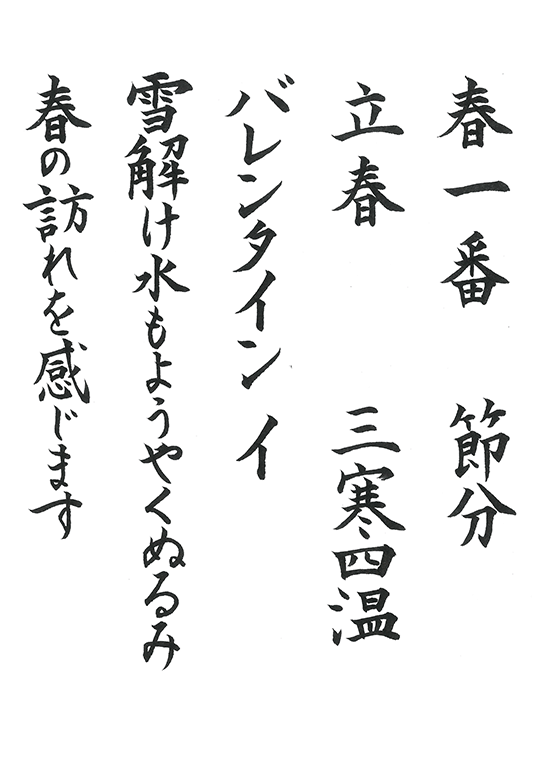 春一番　節分
立春　三寒四温
バレンタイン　イ
雪解け水もようやくぬるみ
春の訪れを感じます